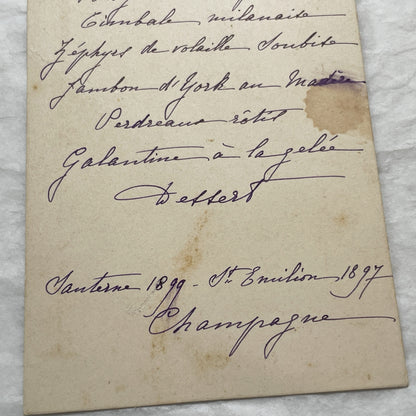 Timbale milanaise
Zéphyrs de volaille Soubise
Jambon d'York au Madère
Perdreaux rôtis
Galantine à la gelée
Dessert
Sauterne 1899 - St Emilion 1897
Champagne